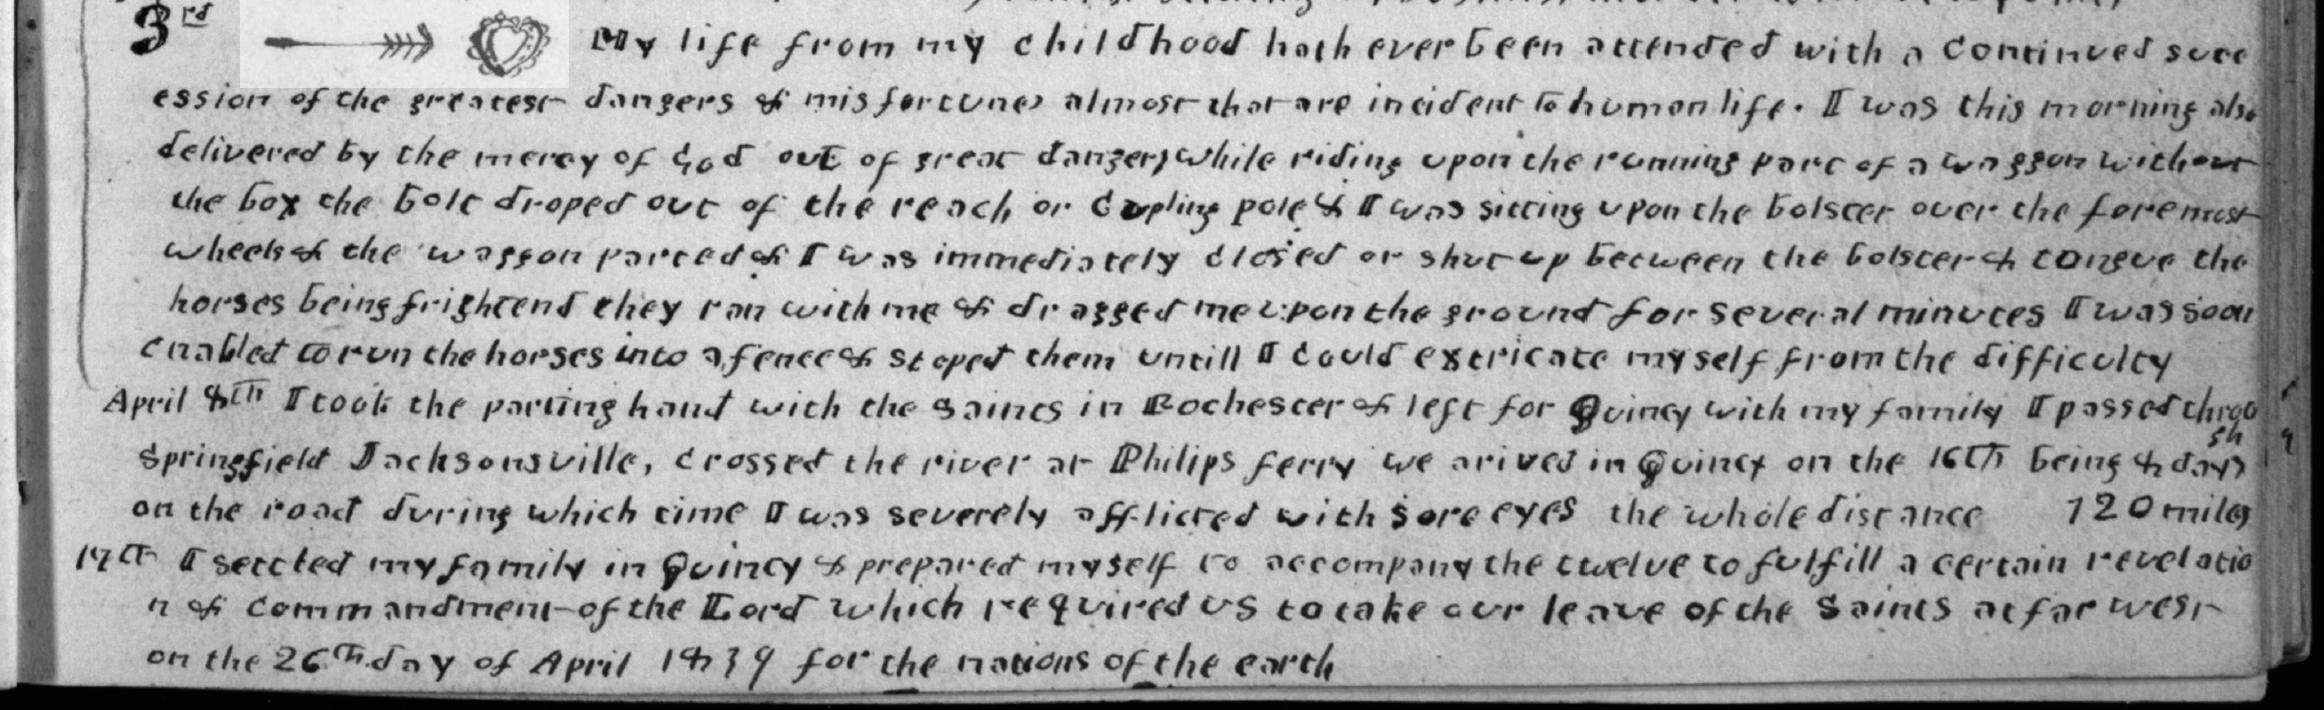 3rd My life from my childhood hath ever been attended with a continued succ
ession of the greatest dangers & misfortunes almost that are incident to human life. I was this morning also
delivered by the mercy of God out of great danger, while riding upon the running part of a waggon without
the box the bolt droped out of the reach or cupling pole & I was sitting upon the bolster over the foremost
wheels & the waggon parted & I was immediately closed or shut up between the bolster & tongue the
horses being frightend they ran with me & dragged me upon the ground for several minutes I was soon
enabled to run the horses into a fence & stoped them untill I could extricate myself from the difficulty
April 8th I took the parting hand with the Saints in Rochester & left for Quincy with my family I passed throu
gh
Springfield Jacksonsville, crossed the river at Philips ferry we arived in Quincy on the 16th being 8 days
on the road during which time I was severely afflicted with sore eyes the whole distance 120 miles
17th I settled my family in Quincy & prepared myself to accompany the twelve to fulfill a certain revelatio
n & commandment of the Lord which required us to take our leave of the Saints at far west
on the 26th day of April 1839 for the nations of the earth